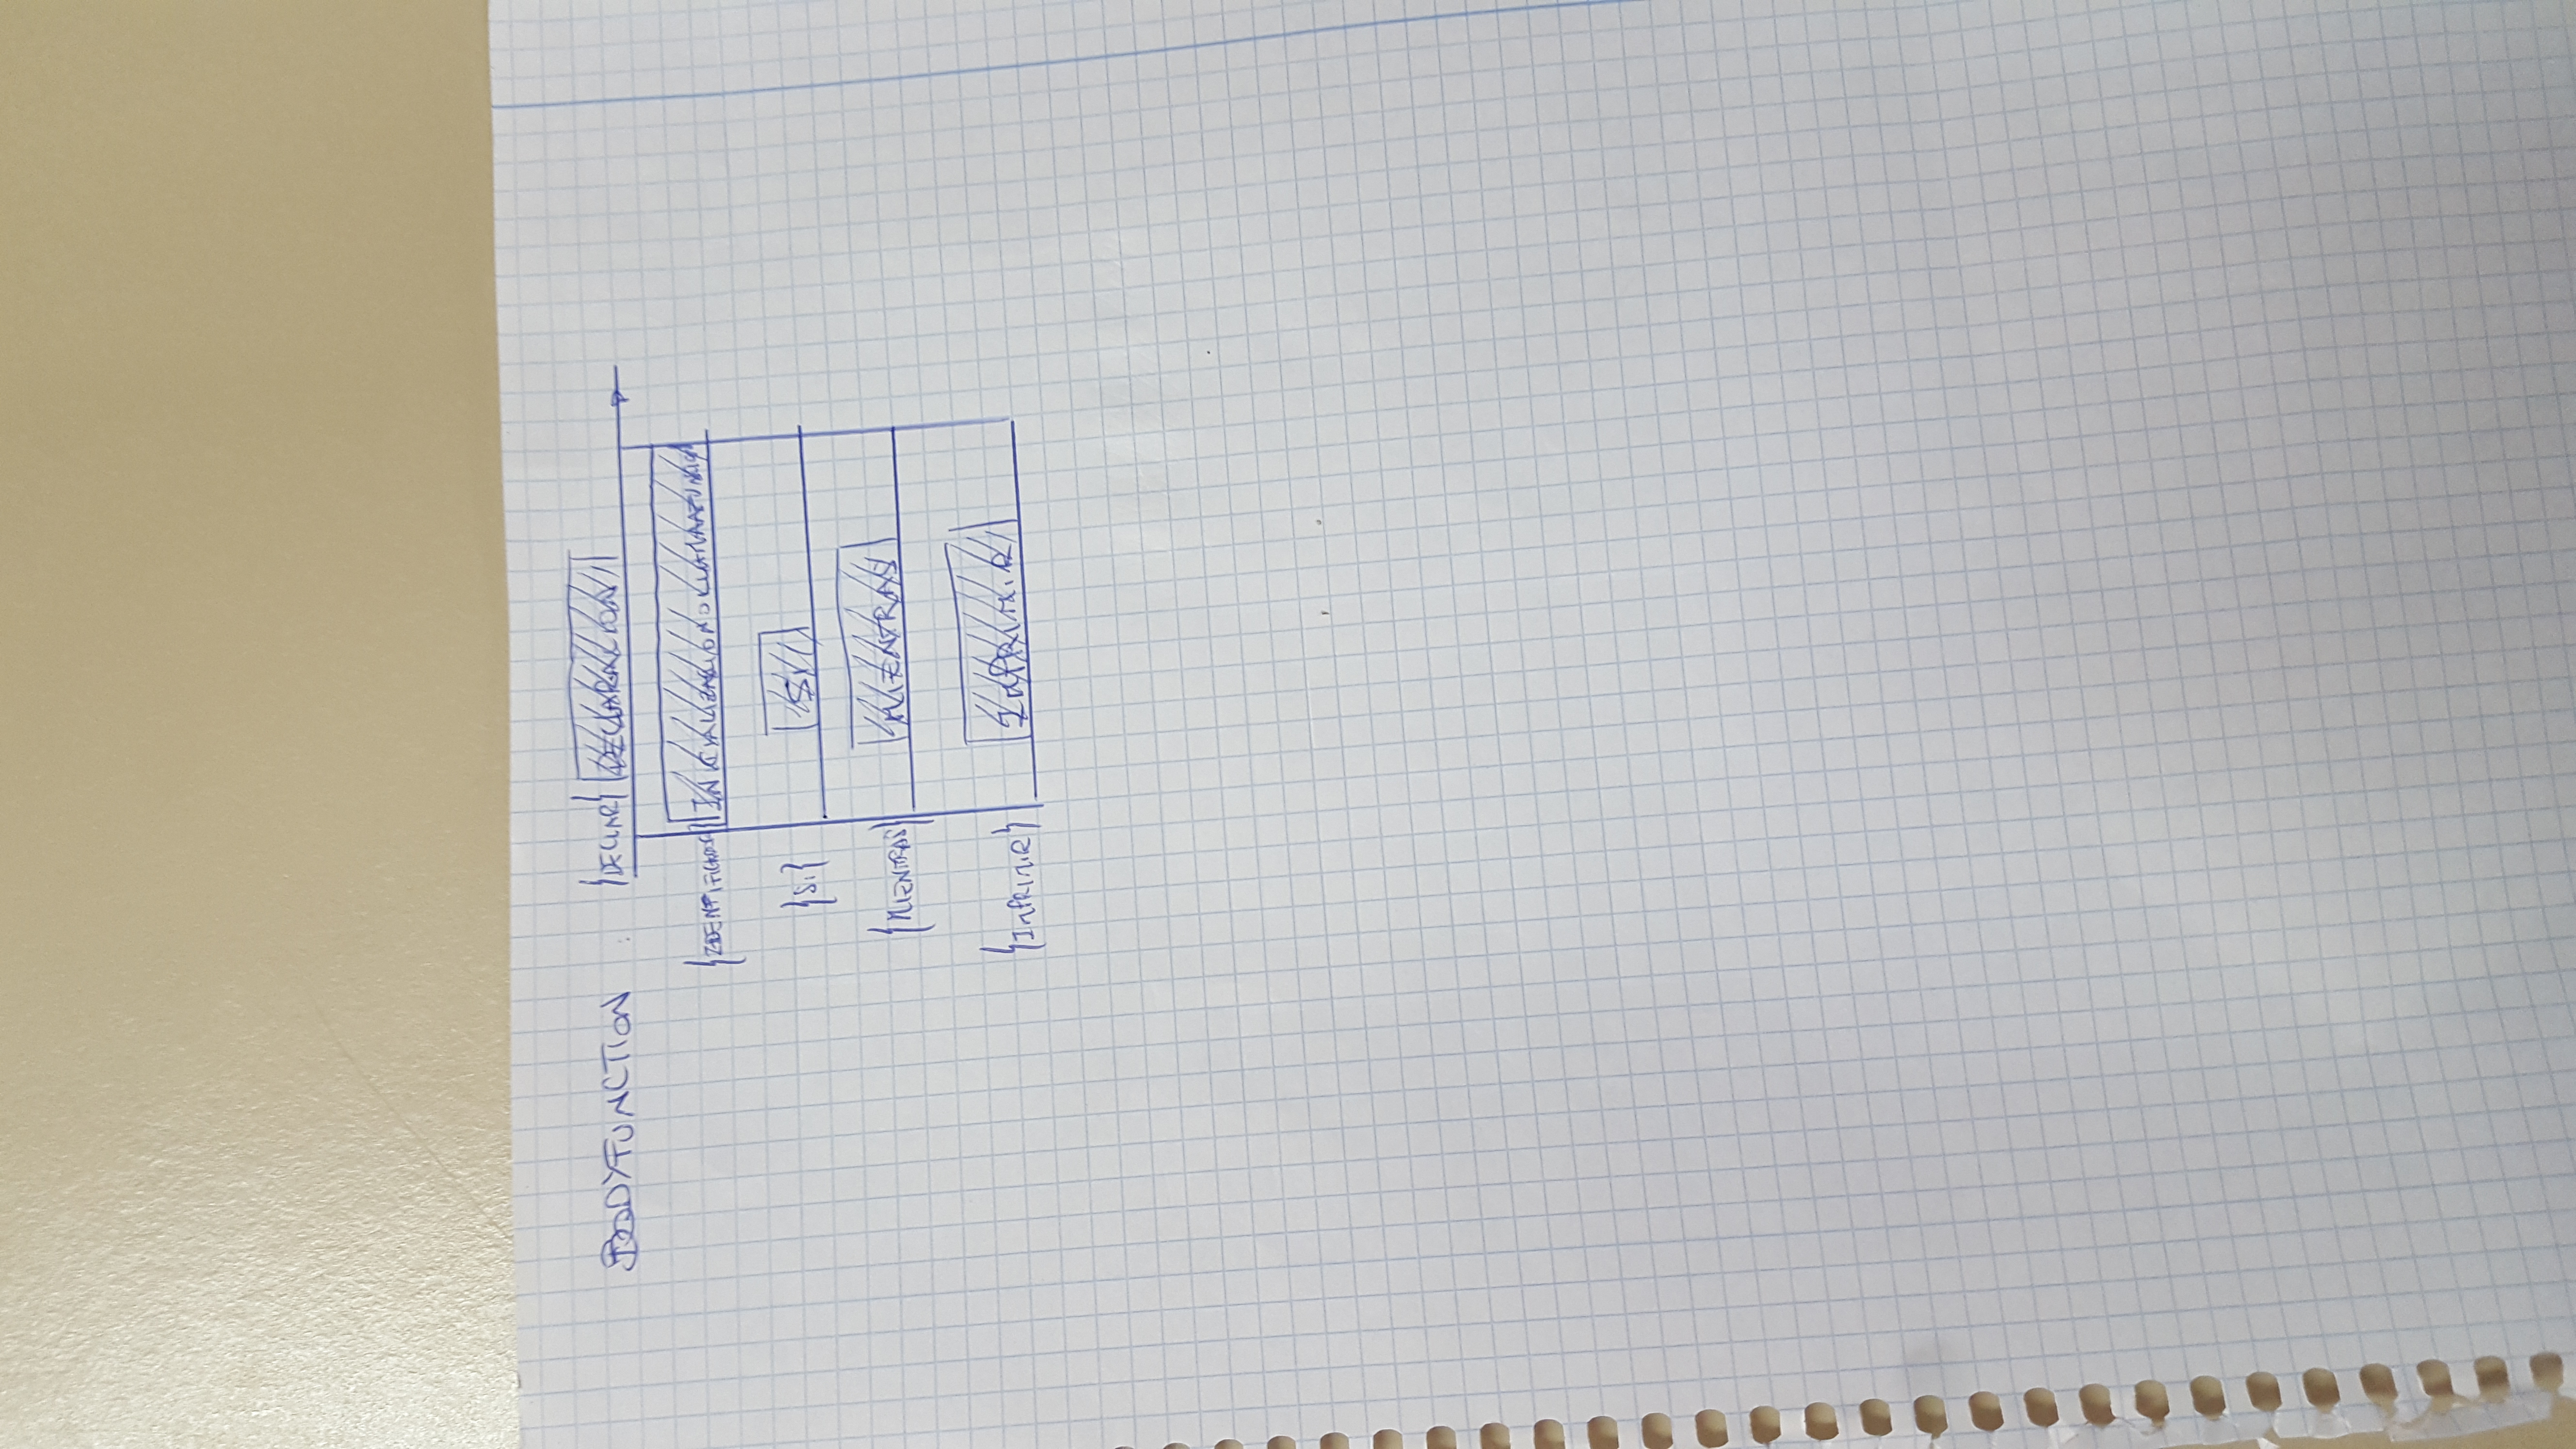 BODYFUNCTION : {DECLAR} DECLARACION
{IDENTIFICADOR} INICIALIZACIONOLLAMADAFUNCION
{Si} Si
{MIENTRAS} MIENTRAS
{IMPRIMIR} IMPRIMIR